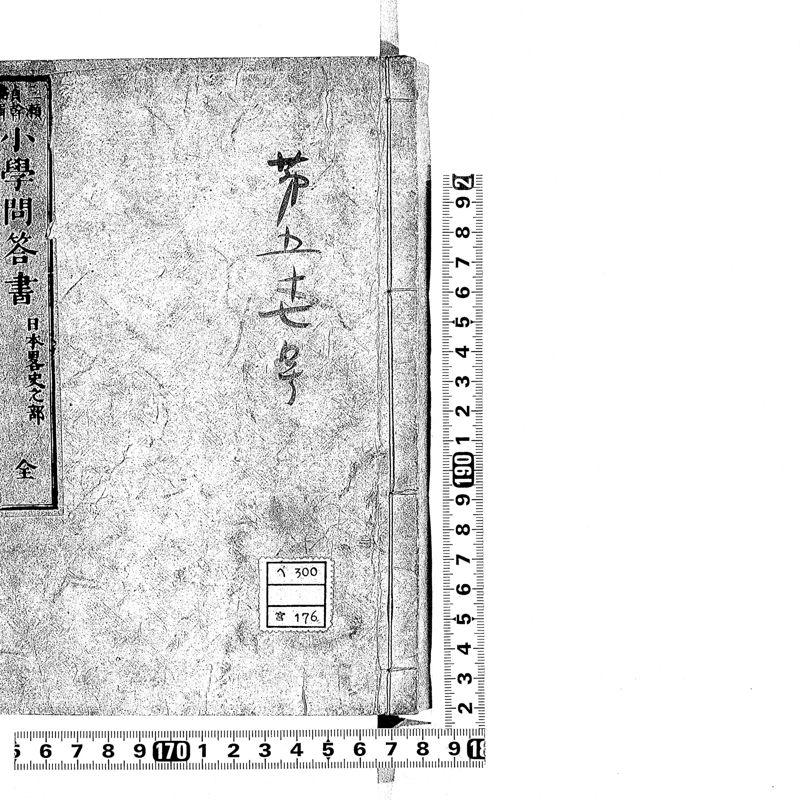 第五十七号
小學問答書
日本畧史之部
全
ベ 300
宮 176
2
9
8
7
6
5
4
3
2
1
190
9
8
7
6
5
4
3
2
6 7 8 9 170 1 2 3 4 5 6 7 8 9